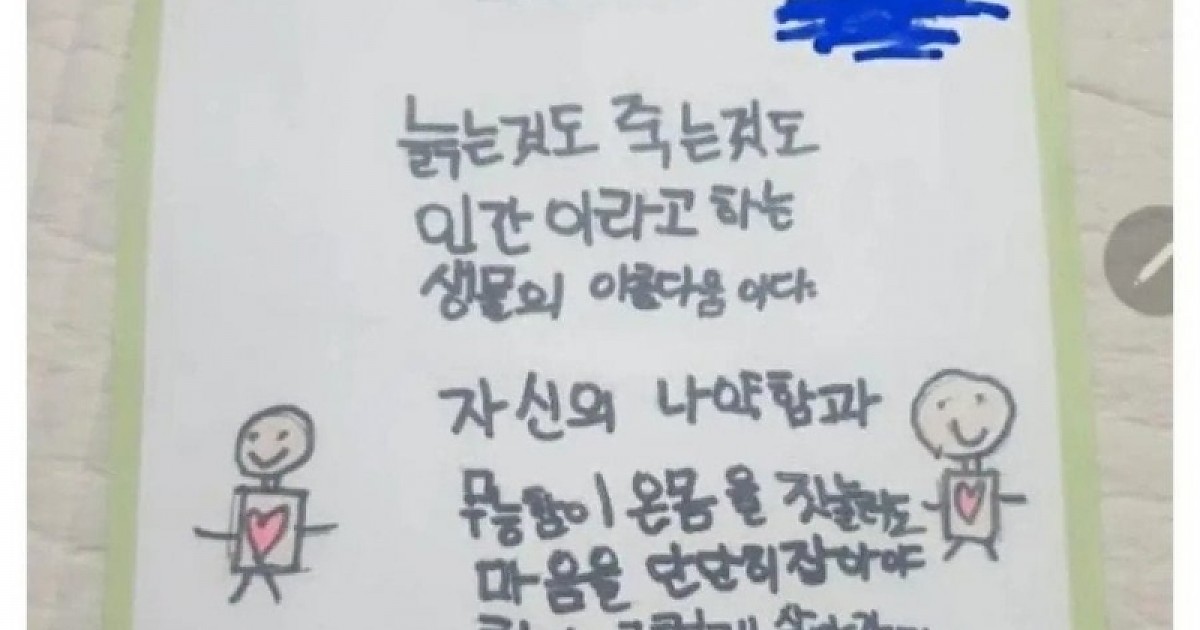 늙는것도 죽는것도
인간 이라고 하는
생물의 아름다움 이다.
자신의 나약함과
무능함이 온몸을 짓눌러도
마음을 단단히잡아야